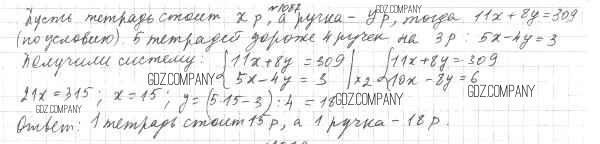 №1087
Пусть тетрадь стоит x р, а ручка - y р, тогда 11x + 8y = 309
(по условию). 5 тетрадей дороже 4 ручек на 3 р : 5x - 4y = 3
Получили систему: { 11x + 8y = 309 { 11x + 8y = 309
GDZ.COMPANY 5x - 4y = 3 | ×2 GDZ.COMPANY 10x - 8y = 6 GDZ.COMPANY
21x = 315; x = 15; y = (5·15 - 3) : 4 = 18 GDZ.COMPANY GDZ.COMPANY
GDZ.COMPANY
Ответ: 1 тетрадь стоит 15 р, а 1 ручка - 18 р.